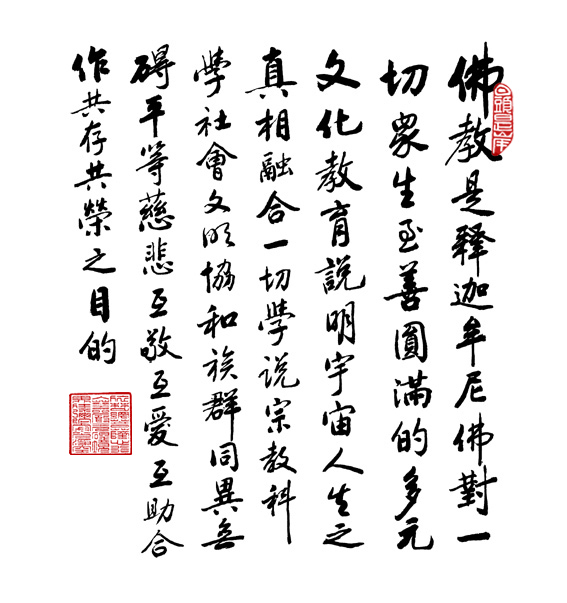 佛教是釋迦牟尼佛對一
切眾生至善圓滿的多元
文化教育說明宇宙人生之
真相融合一切學說宗教科
學社會文明協和族群同異無
礙平等慈悲互敬互愛互助合
作共存共榮之目的